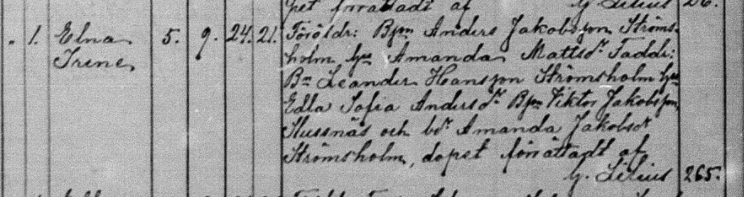 pet förrättadt af G. Lilius 26.
" 1. Elna 5. 9. 24. 21. Föräldr: Bjm Anders Jakobsson Ströms-
Irene holm, hu Amanda Mattsdr. Faddr:
Bn Leander Hansson Strömsholm hu
Edla Sofia Andersdr Bjm Viktor Jakobsson
Slussnäs och bdr Amanda Jakobsdr
Strömsholm, dopet förrättadt af
G. Lilius 265.